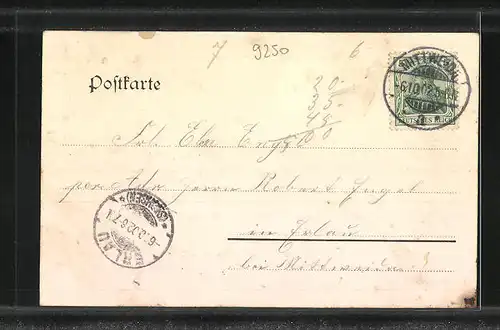 7 9250 6
Postkarte
20-
35-
45-
100
Frl. Elsa Engel
per Adr Herrn Robert Engel
in Erlau
bei Mittweida
MITTWEIDA
DEUTSCHES REICH
(SACHSEN)
ERLAU